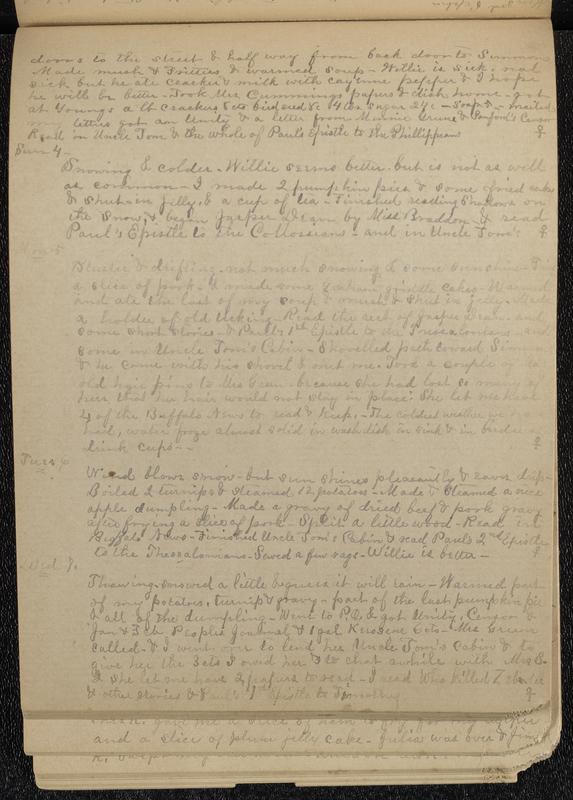 down to the street & half way from back door to Simmons
Made mush & Fritters & warmed soup - Willie is sick. real
sick but he ate cracker & milk with cayenne pepper & I hope
he will be better - Took Mrs Cummings papers & dish home - got
at Youngs a lb crackers 8cts bird seed 8c 4 lbs sugar 24c - Soap 5 - mailed
my letters got am Unity & a letter from Mamie Greene & Sanford's Censor
Read in Uncle Tom & the whole of Paul's Epistle to the Phillippians
Sun 4
Snowing & colder. Willie seems better. but is not as well
as common - I made 2 pumpkin pies & some fried cakes
& shut-in jelly. & a cup of tea - Finished reading Shadows on
the Snow, & began Jasper Deane by Miss Braddon - & read
Paul's Epistle to the Collossians - and in Uncle Tom's
Mon 5
Bluster & drifting. not much snowing & some sunshine -
a slice of pork - I made some Graham griddle cakes - Warmed
and ate the last of my soup & mush & shut in jelly - Made
a holder of old ticking - Read the rest of Jasper Deane and
some short stories - & Paul's 1st Epistle to the Thessalonians - and
some in Uncle Tom's Cabin - Shovelled path toward
& he come with his shovel & met me. Took a couple of
old hair pins to the because she had lost so many of
hers that her hair would not stay in place. She let me have
4 of the Buffalo News to read & keep. - The coldest weather we
had, water froze almost solid in wash dish in sink & in birdies
drink cups - -
Tues 6
Wind blows snow - but sun shines pleasantly & eaves drip -
Boiled 2 turnips & steamed 12 potatoes - Made & steamed a nice
apple dumpling - Made a gravy of dried beef & pork gravy
after frying a slice of pork - Split a little wood - Read in
Buffalo News - Finished Uncle Tom's Cabin & read Paul's 2nd Epistle
to the Thessalonians - Sewed a few rags - Willie is better -
Wed 7.
Thawing. snowed a little & guess it will rain - Warmed part
of my potatoes. turnip & gravy - part of the last pumpkin pie
& all of the dumpling - Went to P.O. & got Unity, Censor &
Jan & Feb Peoples Journal & 1 gal Kerosene 6cts - Mrs Green
called - & I went over to lend her Uncle Tom's Cabin & to
give her the 3cts I owed her & to chat awhile with Mrs S.
& she let me have 2 papers to read - I read Who Killed
& other stories & Paul's 1st Epistle to Timothy
gave me a slice of ham to fry for my
and a slice of plum jelly cake - Julia was over &